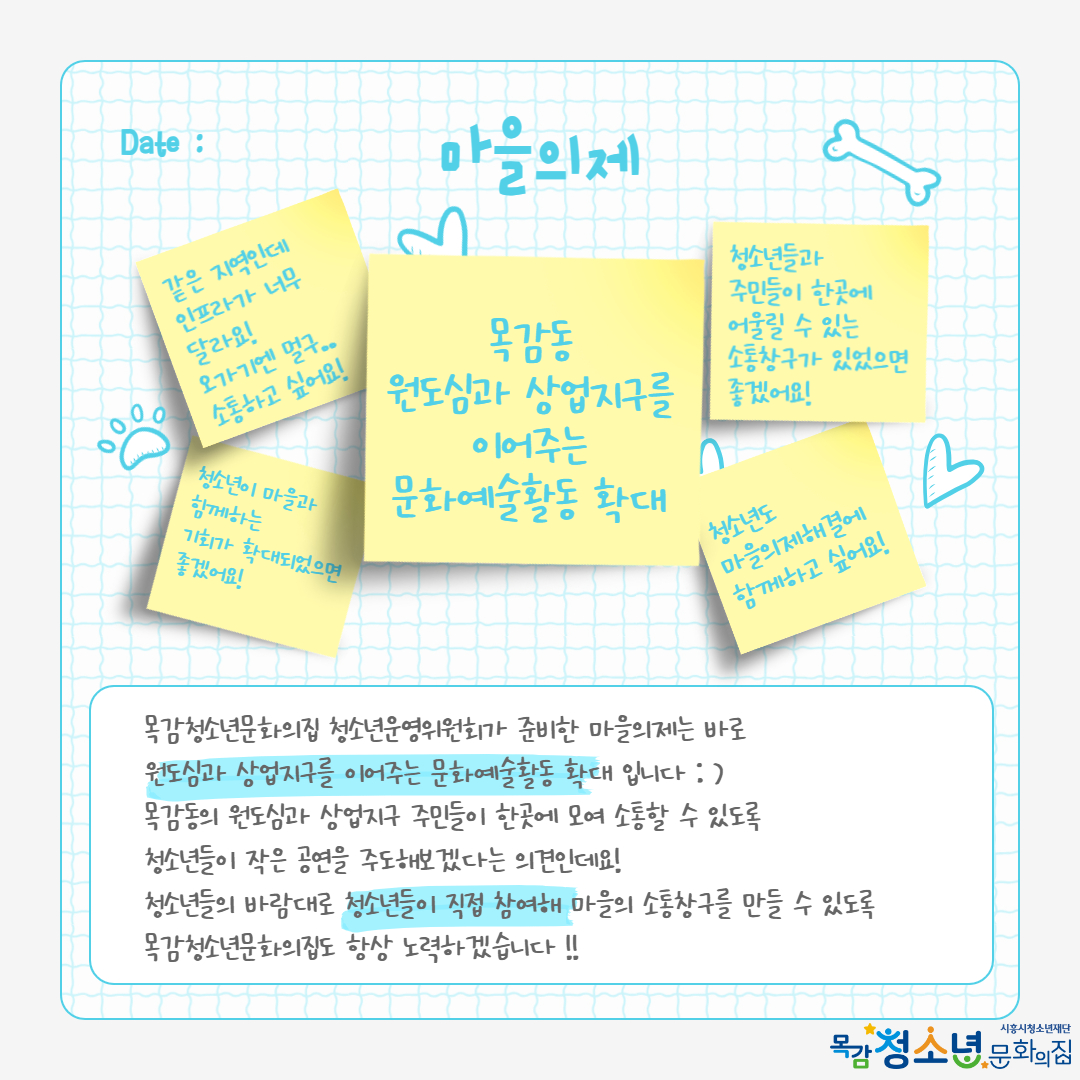 Date :
마을의제
같은 지역인데
인프라가 너무
달라요!
오가기엔 멀구..
소통하고 싶어요!
목감동
원도심과 상업지구를
이어주는
문화예술활동 확대
청소년들과
주민들이 한곳에
어울릴 수 있는
소통창구가 있었으면
좋겠어요!
청소년이 마을과
함께하는
기회가 확대되었으면
좋겠어요!
청소년도
마을의제해결에
함께하고 싶어요!
목감청소년문화의집 청소년운영위원회가 준비한 마을의제는 바로
원도심과 상업지구를 이어주는 문화예술활동 확대 입니다 : )
목감동의 원도심과 상업지구 주민들이 한곳에 모여 소통할 수 있도록
청소년들이 작은 공연을 주도해보겠다는 의견인데요!
청소년들의 바람대로 청소년들이 직접 참여해 마을의 소통창구를 만들 수 있도록
목감청소년문화의집도 항상 노력하겠습니다 !!
시흥시청소년재단
목감청소년문화의집